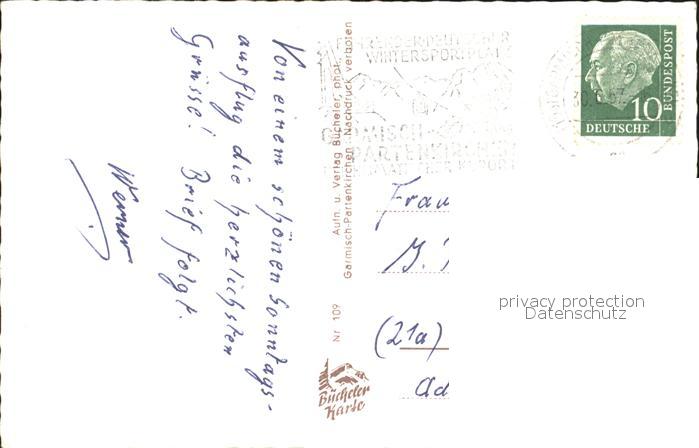 Von einem schönen Sonntags-
ausflug die herzlichsten
Grüsse! Brief folgt.
Werner
Aufn. u. Verlag Bücheler, phot.
Garmisch-Partenkirchen Nachdruck verboten
Nr 109
Bücheler
Karte
FÜHRENDER DEUTSCHER
WINTERSPORTPLATZ
GARMISCH-
PARTENKIRCHEN
10
DEUTSCHE
BUNDESPOST
Frau
(21a)
privacy protection
Datenschutz